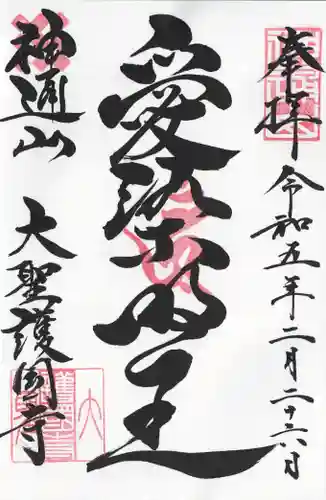 奉拝
令和五年二月二十六日
愛染明王
神通山
大聖護国寺